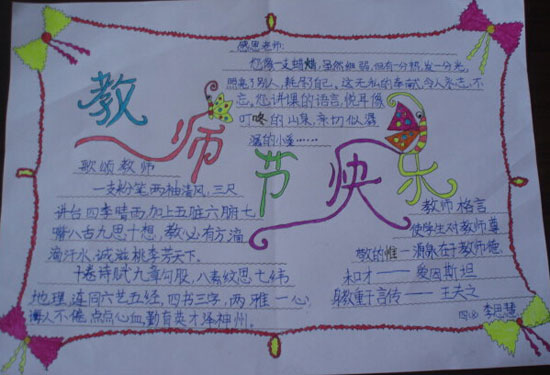 感恩老师:
您像一支蜡烛,虽然细弱,但有一分热,发一分光,
照亮了别人,耗尽了自己,这无私的奉献,令人永志不
忘,您讲课的语言,悦耳像
叮咚的山泉,亲切似潺
潺的小溪……
教师节快乐
歌颂教师
一支粉笔两袖清风,三尺
讲台四季晴雨,加上五脏六腑七
嘴八舌九思十想,教必有方,滴
滴汗水,诚滋桃李芳天下。
十卷诗赋九章勾股,八索文思七纬
地理,连同六艺五经,四书三字,两雅一心,
诲人不倦,点点心血,勤育英才泽神州。
教师格言
使学生对教师尊
敬的惟一源泉在于教师德
和才——爱因斯坦
身教重于言传——王夫之
李思慧